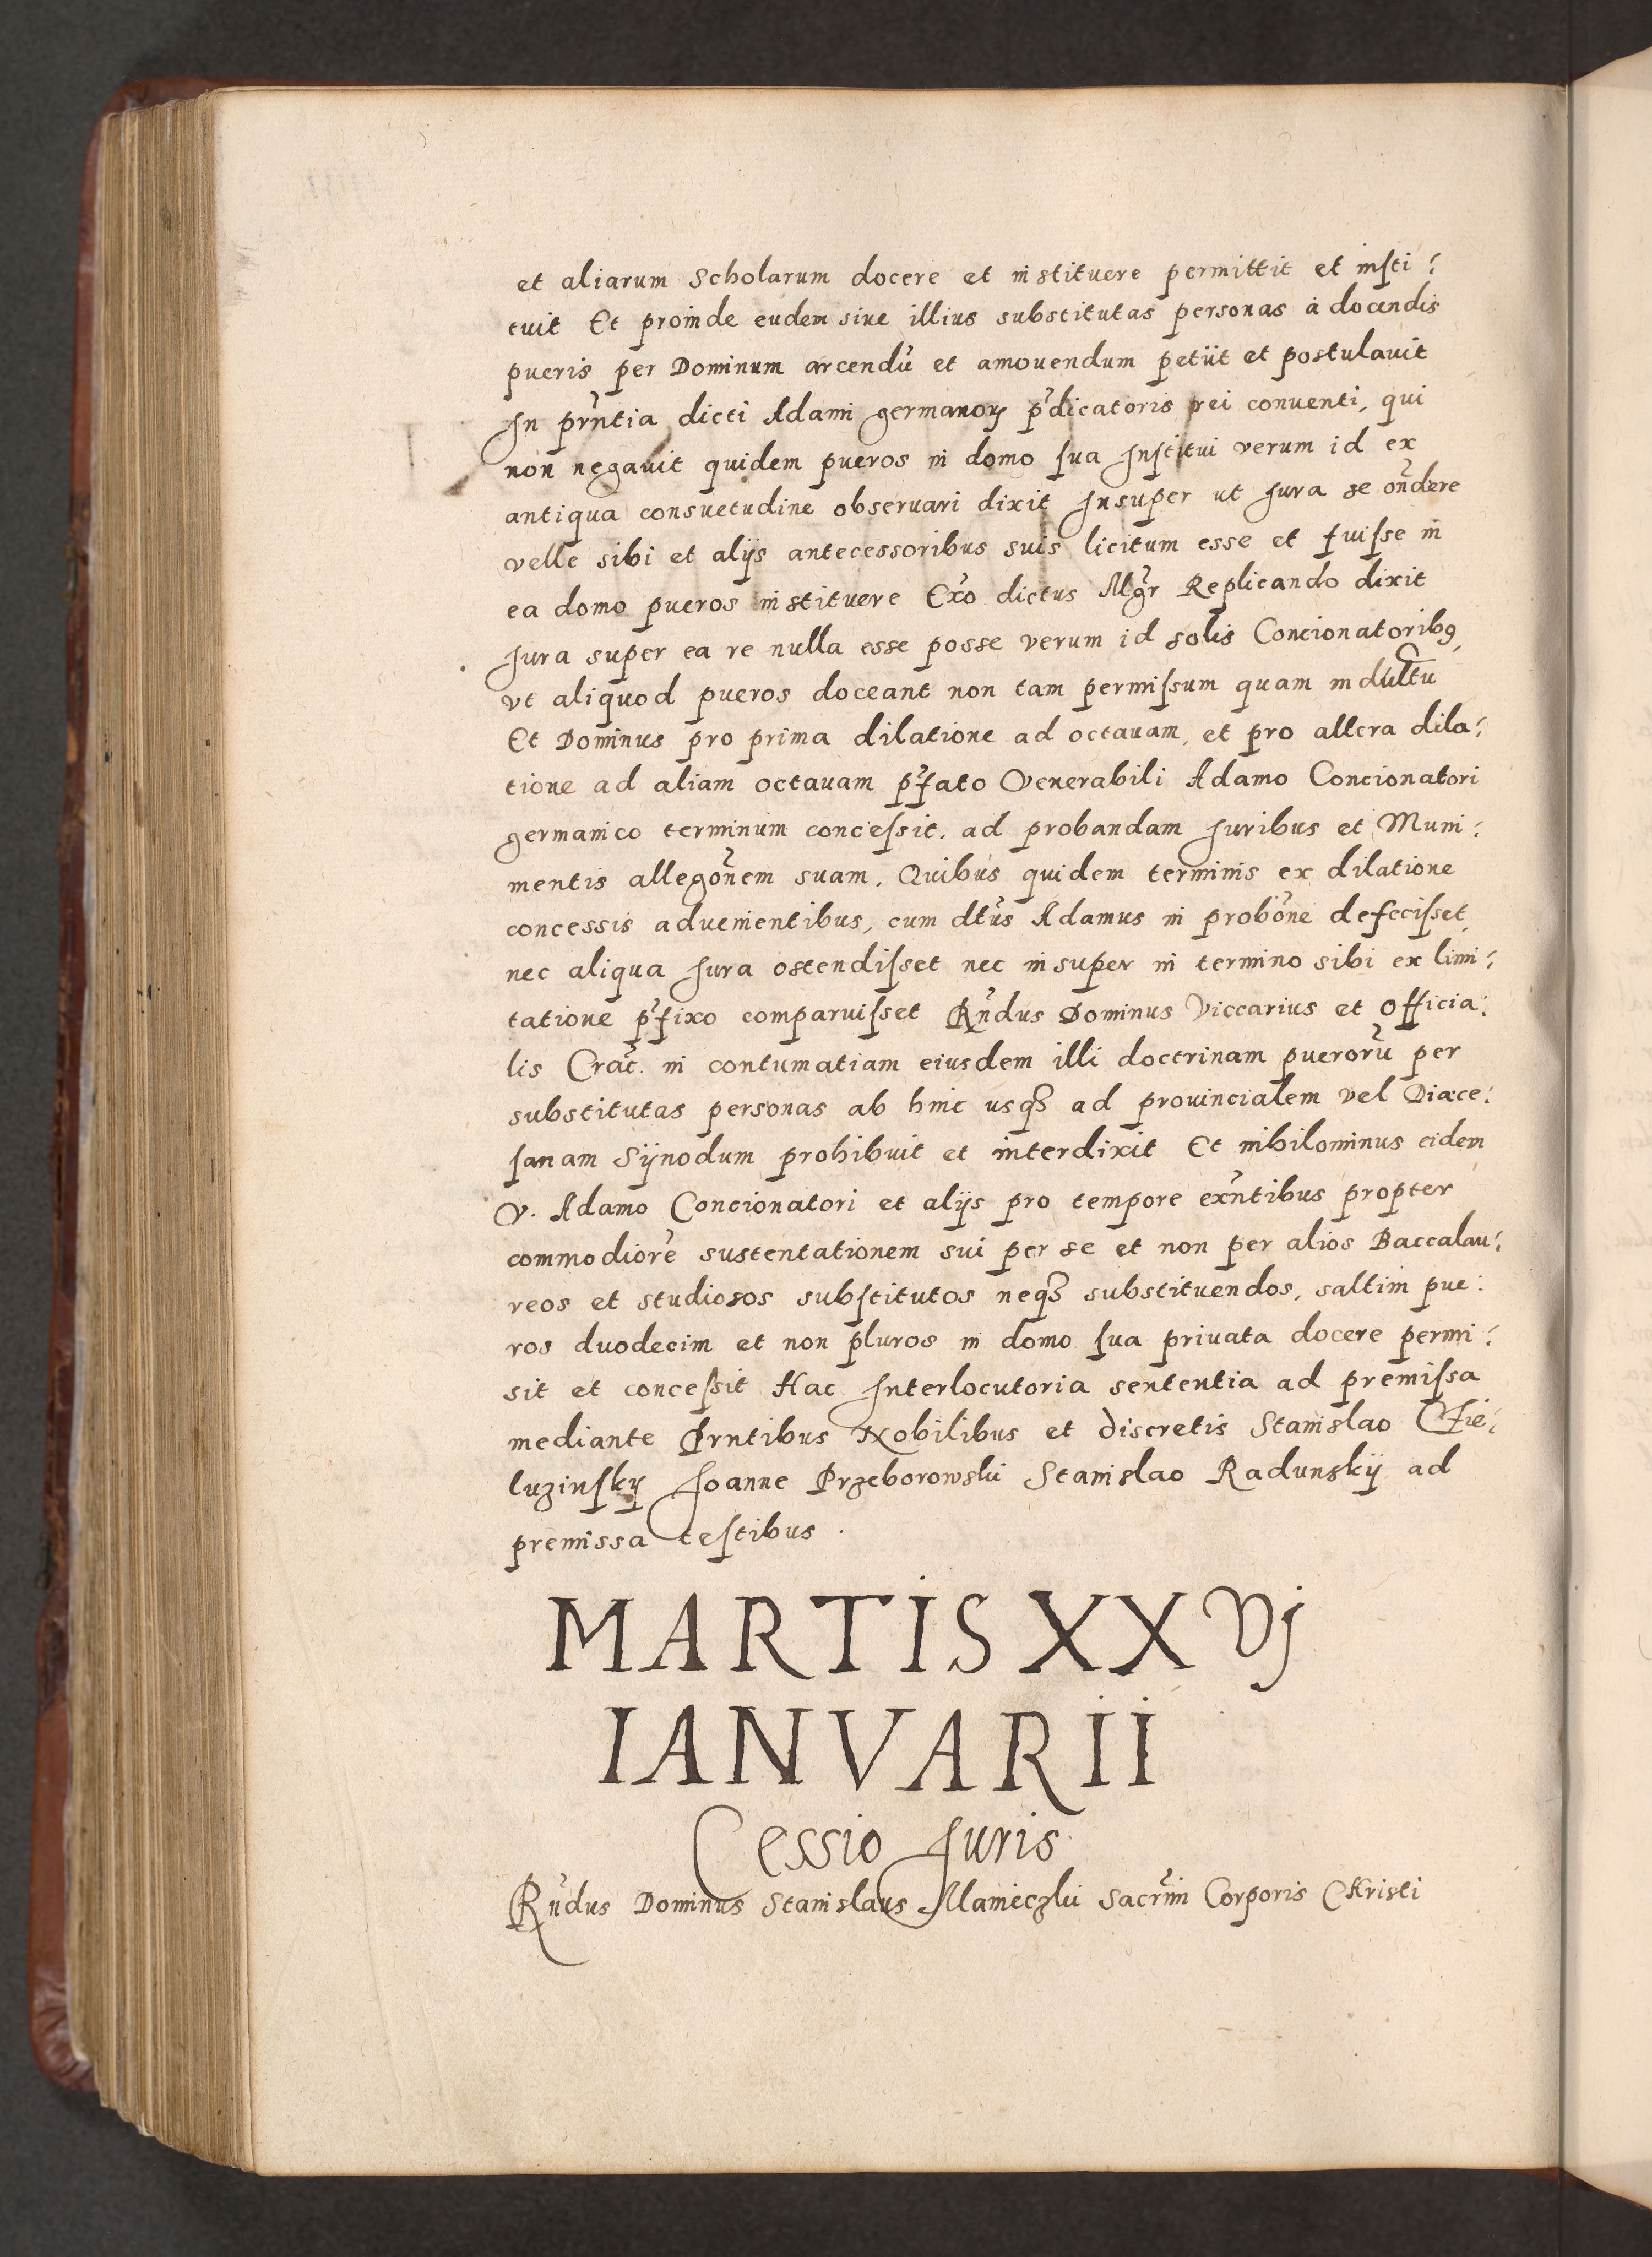 et aliarum Scholarum docere et instituere permittit et insti:
tuit Et proinde eudem siue illius substitutas personas à docendis
pueris per Dominum arcendũ et amouendum petÿt et postulauit
In prñtia dicti Adami germanoꝝ p̃dicatoris rei conuenti, qui
non negauit quidem pueros in domo sua Institui verum id ex
antiqua consuetudine obseruari dixit Insuper ut Jura se oñdere
velle sibi et alijs antecessoribus suis licitum esse et fuisse in
ea domo pueros instituere Exo dictus Mgr Replicando dixit
Jura super ea re nulla esse posse verum id solis Concionatoribꝯ,
vt aliquod pueros doceant non tam permissum quam indultũ
Et Dominus pro prima dilatione ad octauam, et pro altera dila:
tione ad aliam octauam p̃fato Venerabili Adamo Concionatori
germanico terminum concessit. ad probandam Juribus et Muni:
mentis allegoñem suam. Quibus quidem terminis ex dilatione
concessis aduenientibus, cum dtũs Adamus in probõne defecisset,
nec aliqua Jura ostendisset nec insuper in termino sibi ex limi:
tatione p̃fixo comparuisset Rñdus Dominus Viccarius et Officia:
lis Crac̃. in contumatiam eiusdem illi doctrinam puerorũ per
substitutas personas ab hinc usqꝫ ad prouincialem vel Diæce:
sanam Sijnodum prohibuit et interdixit Et nihilominus eidem
V. Adamo Concionatori et alijs pro tempore exñtibus propter
commodiorẽ sustentationem sui per se et non per alios Baccalau:
reos et studiosos substitutos neqꝫ substituendos, saltim pue:
ros duodecim et non pluros in domo sua priuata docere permi:
sit et concessit Hac Interlocutoria sententia ad premissa
mediante Prntibus Nobilibus et discretis Stanislao Chie:
luzinsky Joanne Przeborowski Stanislao Radunskij ad
premissa testibus.
MARTIS XXVj
IANVARII
Cessio Juris
Rñdus Dominus Stanislaus Manieczki Sacrm̃ Corporis CHristi